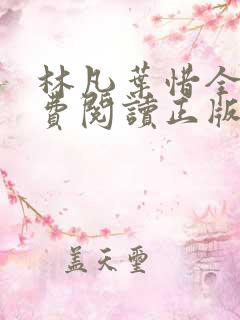 林凡葉惜全
費閱讀正版
蓋天聖